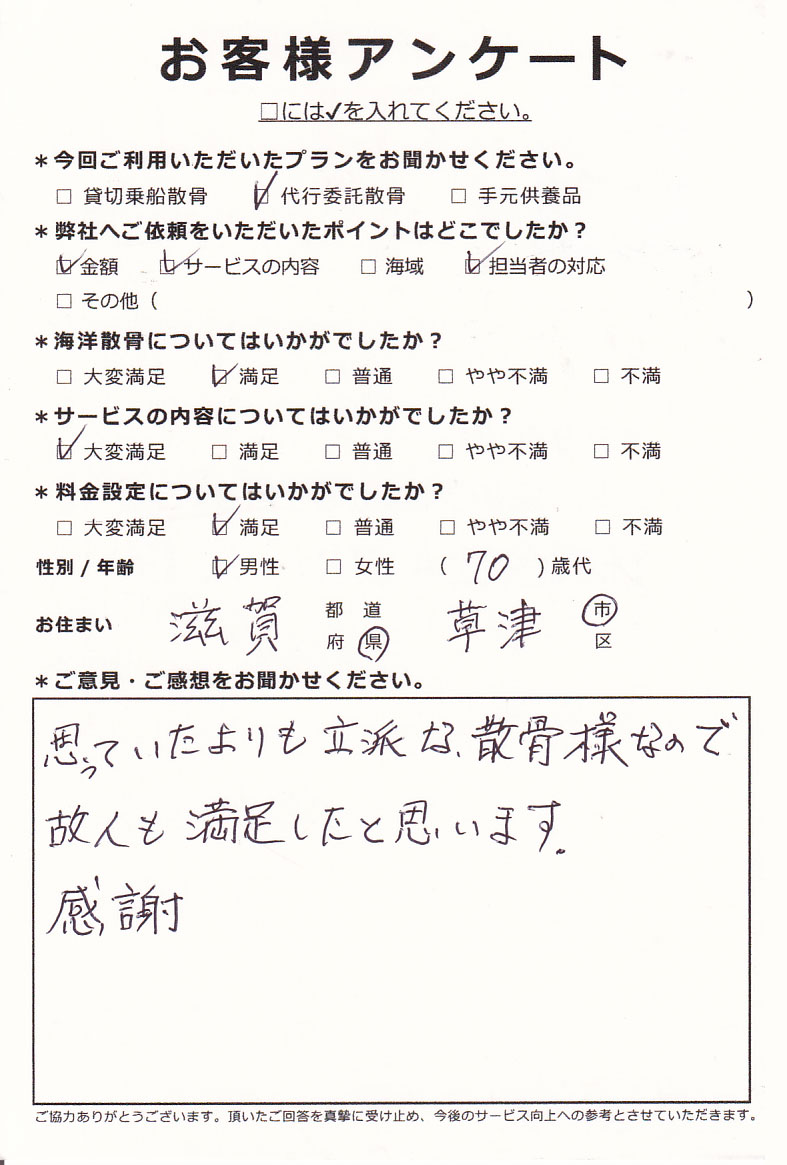 お客様アンケート
□には✓を入れてください。
＊今回ご利用いただいたプランをお聞かせください。
□ 貸切乗船散骨 ☑ 代行委託散骨 □ 手元供養品
＊弊社へご依頼をいただいたポイントはどこでしたか？
☑ 金額 ☑ サービスの内容 □ 海域 ☑ 担当者の対応
□ その他（ ）
＊海洋散骨についてはいかがでしたか？
□ 大変満足 ☑ 満足 □ 普通 □ やや不満 □ 不満
＊サービスの内容についてはいかがでしたか？
☑ 大変満足 □ 満足 □ 普通 □ やや不満 □ 不満
＊料金設定についてはいかがでしたか？
□ 大変満足 ☑ 満足 □ 普通 □ やや不満 □ 不満
性別 / 年齢 ☑ 男性 □ 女性 （ 70 ）歳代
お住まい 滋賀 都 道 府 県 草津 市 区
＊ご意見・ご感想をお聞かせください。
思っていたよりも立派な、散骨様なので
故人も満足したと思います。
感謝
ご協力ありがとうございます。頂いたご回答を真摯に受け止め、今後のサービス向上への参考とさせていただきます。